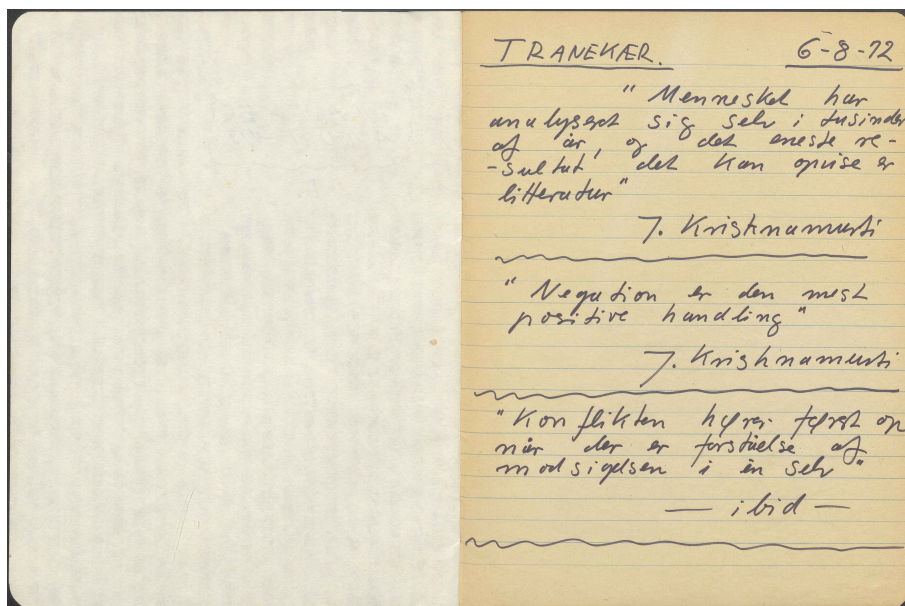 TRANEKÆR. 6-8-72
"Mennesket har
analyseret sig selv i tusinder
af år, og det eneste re-
-sultat det kan opvise er
litteratur"
J. Krishnamurti
"Negation er den mest
positive handling"
J. Krishnamurti
"Konflikten hører først op
når der er forståelse af
modsigelsen i én selv"
— ibid —